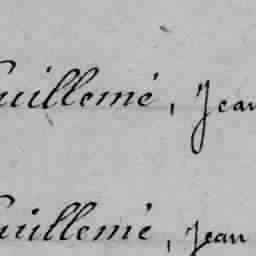 uillemé, Jean
uillemé, Jean